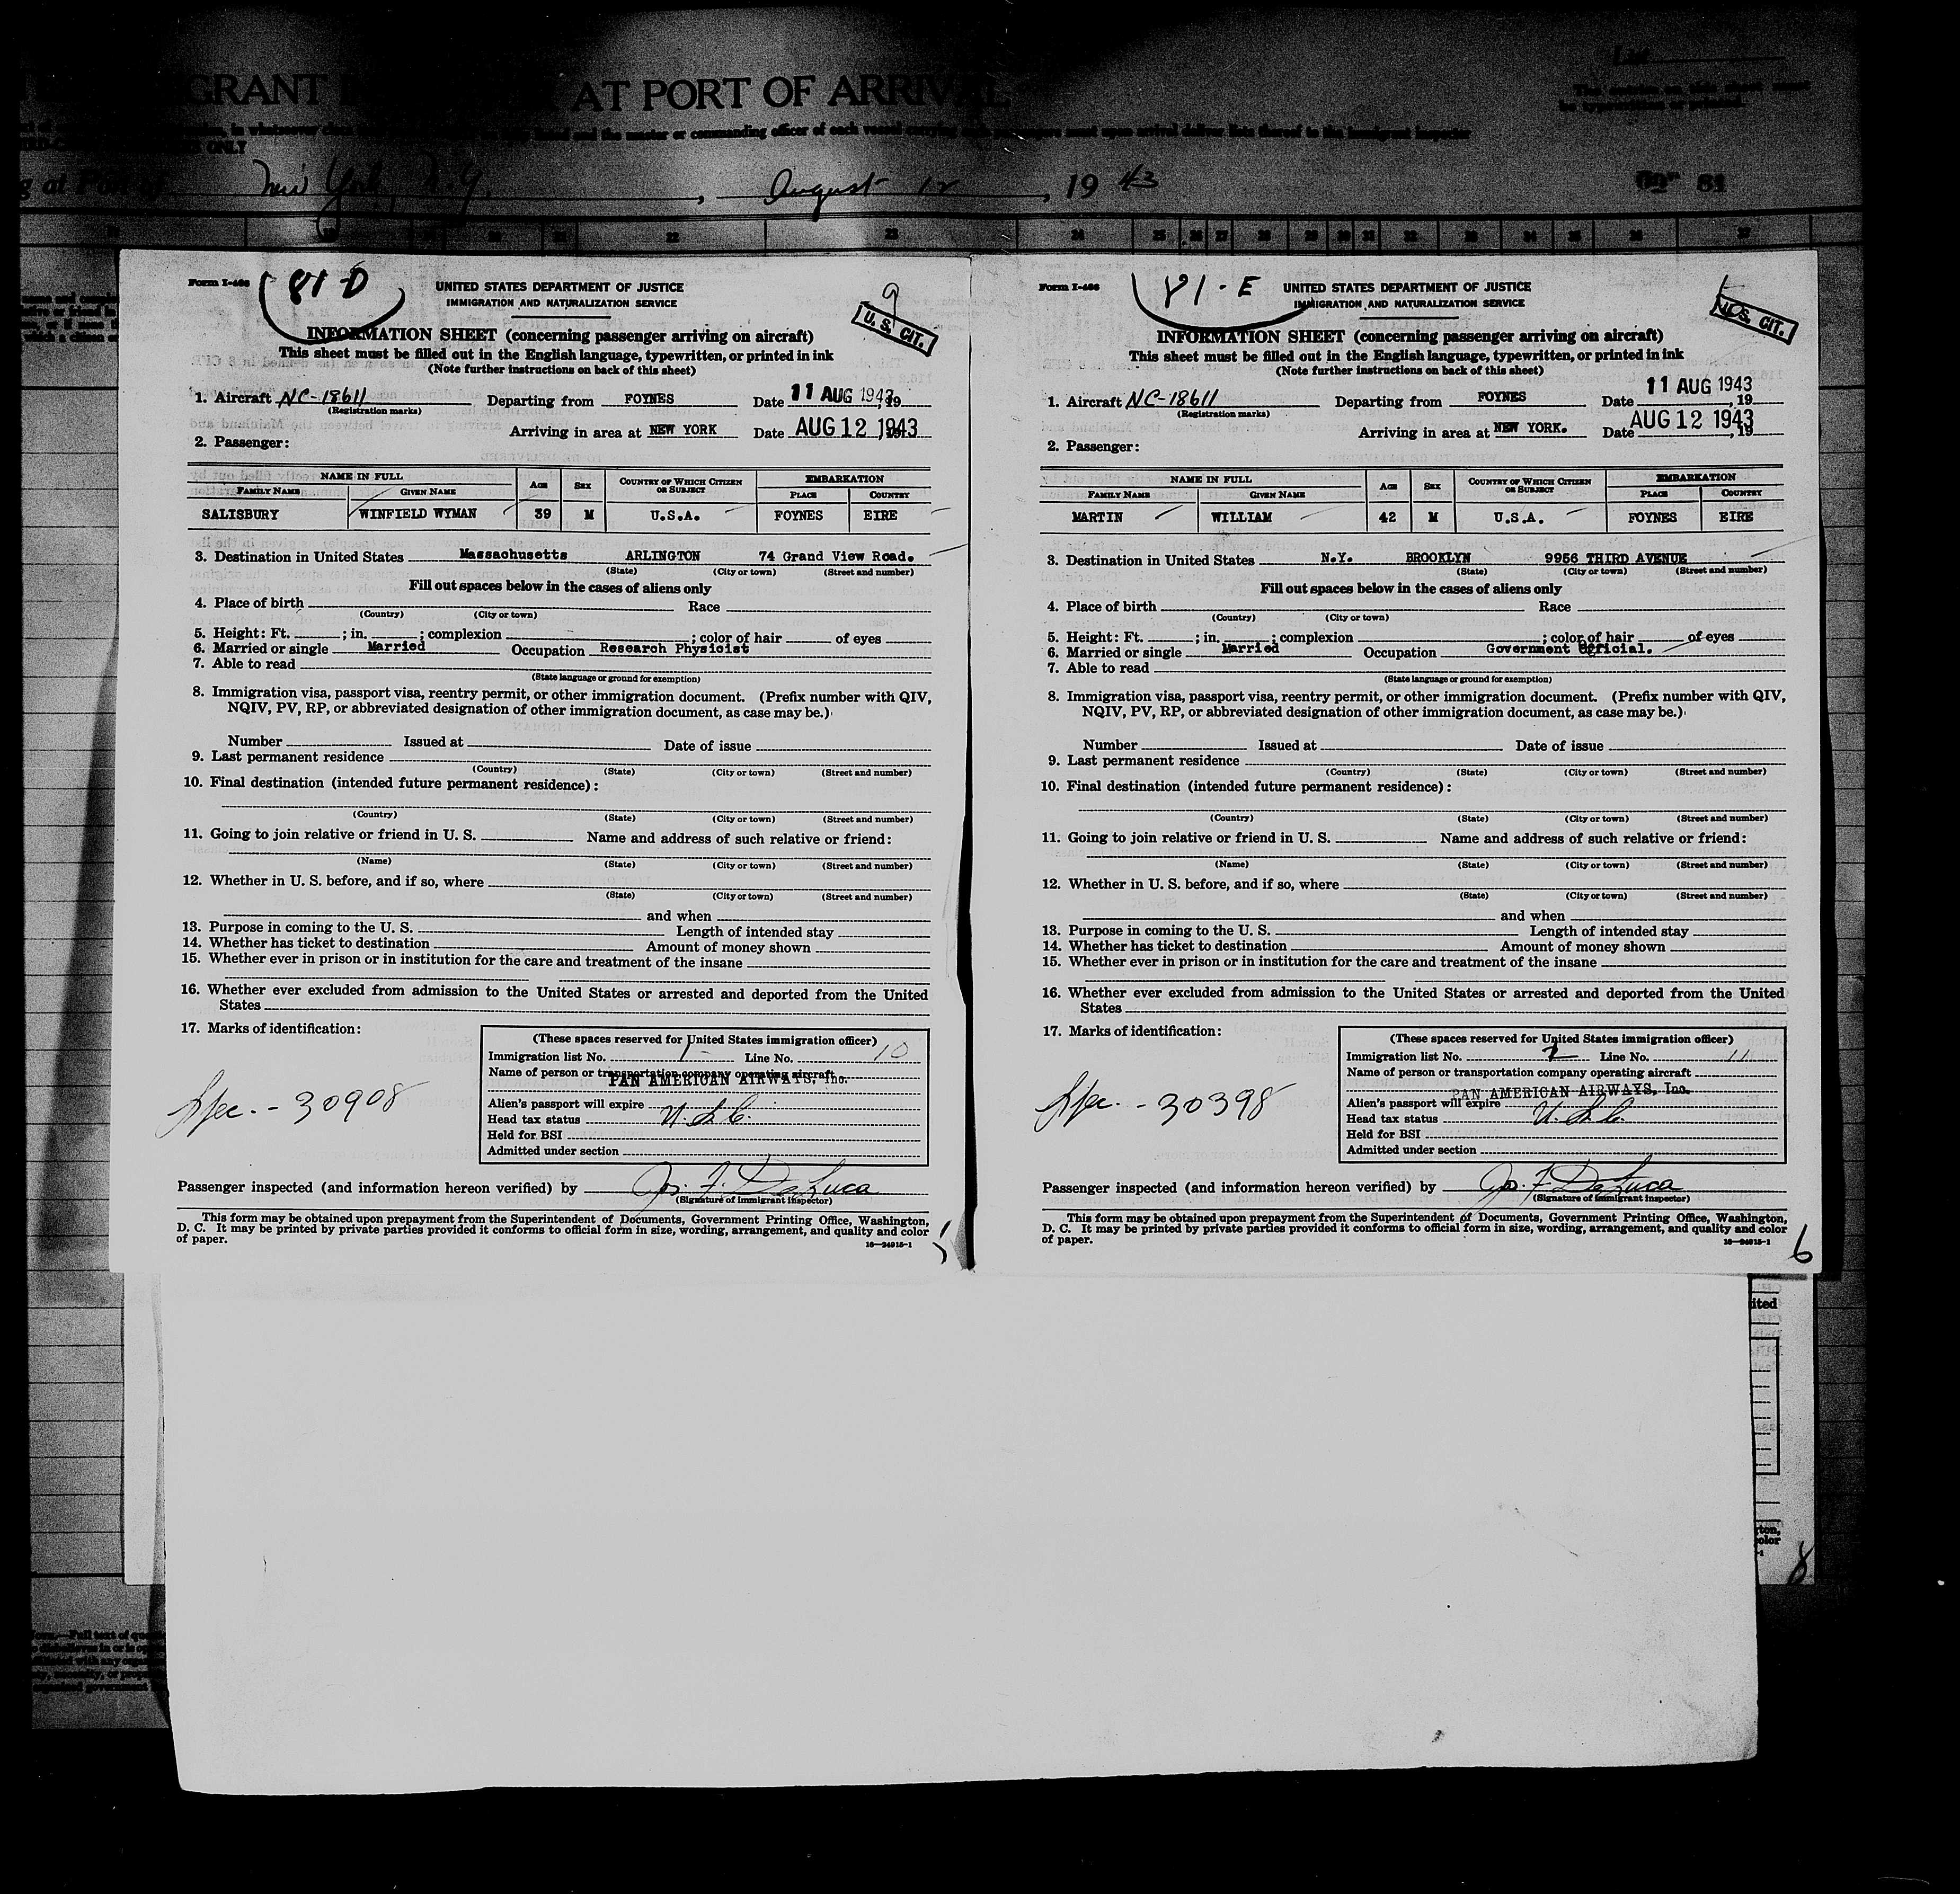 GRANT
AT PORT OF ARRIVAL
ONLY
New York, N.Y. , August 12 , 19 43
81
Form I-466
81-D
UNITED STATES DEPARTMENT OF JUSTICE
IMMIGRATION AND NATURALIZATION SERVICE
9
U. S. CIT.
INFORMATION SHEET (concerning passenger arriving on aircraft)
This sheet must be filled out in the English language, typewritten, or printed in ink
(Note further instructions on back of this sheet)
1. Aircraft NC-18611 Departing from FOYNES Date 11 AUG 1943, 19
(Registration marks)
Arriving in area at NEW YORK Date AUG 12 1943
2. Passenger:
NAME IN FULL AGE SEX COUNTRY OF WHICH CITIZEN OR SUBJECT EMBARKATION
FAMILY NAME GIVEN NAME PLACE COUNTRY
SALISBURY WINFIELD WYMAN 39 M U.S.A. FOYNES EIRE
3. Destination in United States Massachusetts ARLINGTON 74 Grand View Road.
(State) (City or town) (Street and number)
Fill out spaces below in the cases of aliens only
4. Place of birth Race
(Country) (City or town)
5. Height: Ft. ; in. ; complexion ; color of hair of eyes
6. Married or single Married Occupation Research Physicist
7. Able to read
(State language or ground for exemption)
8. Immigration visa, passport visa, reentry permit, or other immigration document. (Prefix number with QIV,
NQIV, PV, RP, or abbreviated designation of other immigration document, as case may be.)
Number Issued at Date of issue
9. Last permanent residence
(Country) (State) (City or town) (Street and number)
10. Final destination (intended future permanent residence):
(Country) (State) (City or town) (Street and number)
11. Going to join relative or friend in U. S. Name and address of such relative or friend:
(Name) (State) (City or town) (Street and number)
12. Whether in U. S. before, and if so, where
(State) (City or town) (Street and number)
and when
13. Purpose in coming to the U. S. Length of intended stay
14. Whether has ticket to destination Amount of money shown
15. Whether ever in prison or in institution for the care and treatment of the insane
16. Whether ever excluded from admission to the United States or arrested and deported from the United
States
17. Marks of identification:
(These spaces reserved for United States immigration officer)
Immigration list No. 1 Line No. 10
Name of person or transportation company operating aircraft
PAN AMERICAN AIRWAYS, Inc.
Spec. - 30908
Alien's passport will expire
Head tax status U.S.C.
Held for BSI
Admitted under section
Passenger inspected (and information hereon verified) by Jos. F. DeLuca
(Signature of immigrant inspector)
This form may be obtained upon prepayment from the Superintendent of Documents, Government Printing Office, Washington,
D. C. It may be printed by private parties provided it conforms to official form in size, wording, arrangement, and quality and color
of paper.
16—24915-1
5
Form I-466
81-E
UNITED STATES DEPARTMENT OF JUSTICE
IMMIGRATION AND NATURALIZATION SERVICE
U. S. CIT.
INFORMATION SHEET (concerning passenger arriving on aircraft)
This sheet must be filled out in the English language, typewritten, or printed in ink
(Note further instructions on back of this sheet)
1. Aircraft NC-18611 Departing from FOYNES Date 11 AUG 1943, 19
(Registration marks)
Arriving in area at NEW YORK. Date AUG 12 1943, 19
2. Passenger:
NAME IN FULL AGE SEX COUNTRY OF WHICH CITIZEN OR SUBJECT EMBARKATION
FAMILY NAME GIVEN NAME PLACE COUNTRY
MARTIN WILLIAM 42 M U.S.A. FOYNES EIRE
3. Destination in United States N.Y. BROOKLYN 9956 THIRD AVENUE
(State) (City or town) (Street and number)
Fill out spaces below in the cases of aliens only
4. Place of birth Race
(Country) (City or town)
5. Height: Ft. ; in. ; complexion ; color of hair of eyes
6. Married or single Married Occupation Government Official.
7. Able to read
(State language or ground for exemption)
8. Immigration visa, passport visa, reentry permit, or other immigration document. (Prefix number with QIV,
NQIV, PV, RP, or abbreviated designation of other immigration document, as case may be.)
Number Issued at Date of issue
9. Last permanent residence
(Country) (State) (City or town) (Street and number)
10. Final destination (intended future permanent residence):
(Country) (State) (City or town) (Street and number)
11. Going to join relative or friend in U. S. Name and address of such relative or friend:
(Name) (State) (City or town) (Street and number)
12. Whether in U. S. before, and if so, where
(State) (City or town) (Street and number)
and when
13. Purpose in coming to the U. S. Length of intended stay
14. Whether has ticket to destination Amount of money shown
15. Whether ever in prison or in institution for the care and treatment of the insane
16. Whether ever excluded from admission to the United States or arrested and deported from the United
States
17. Marks of identification:
(These spaces reserved for United States immigration officer)
Immigration list No. Line No. 11
Name of person or transportation company operating aircraft
PAN AMERICAN AIRWAYS, Inc.
Spec. - 30398
Alien's passport will expire
Head tax status U.S.C.
Held for BSI
Admitted under section
Passenger inspected (and information hereon verified) by Jos. F. DeLuca
(Signature of immigrant inspector)
This form may be obtained upon prepayment from the Superintendent of Documents, Government Printing Office, Washington,
D. C. It may be printed by private parties provided it conforms to official form in size, wording, arrangement, and quality and color
of paper.
16—24915-1
6
ited
ton,
color
8